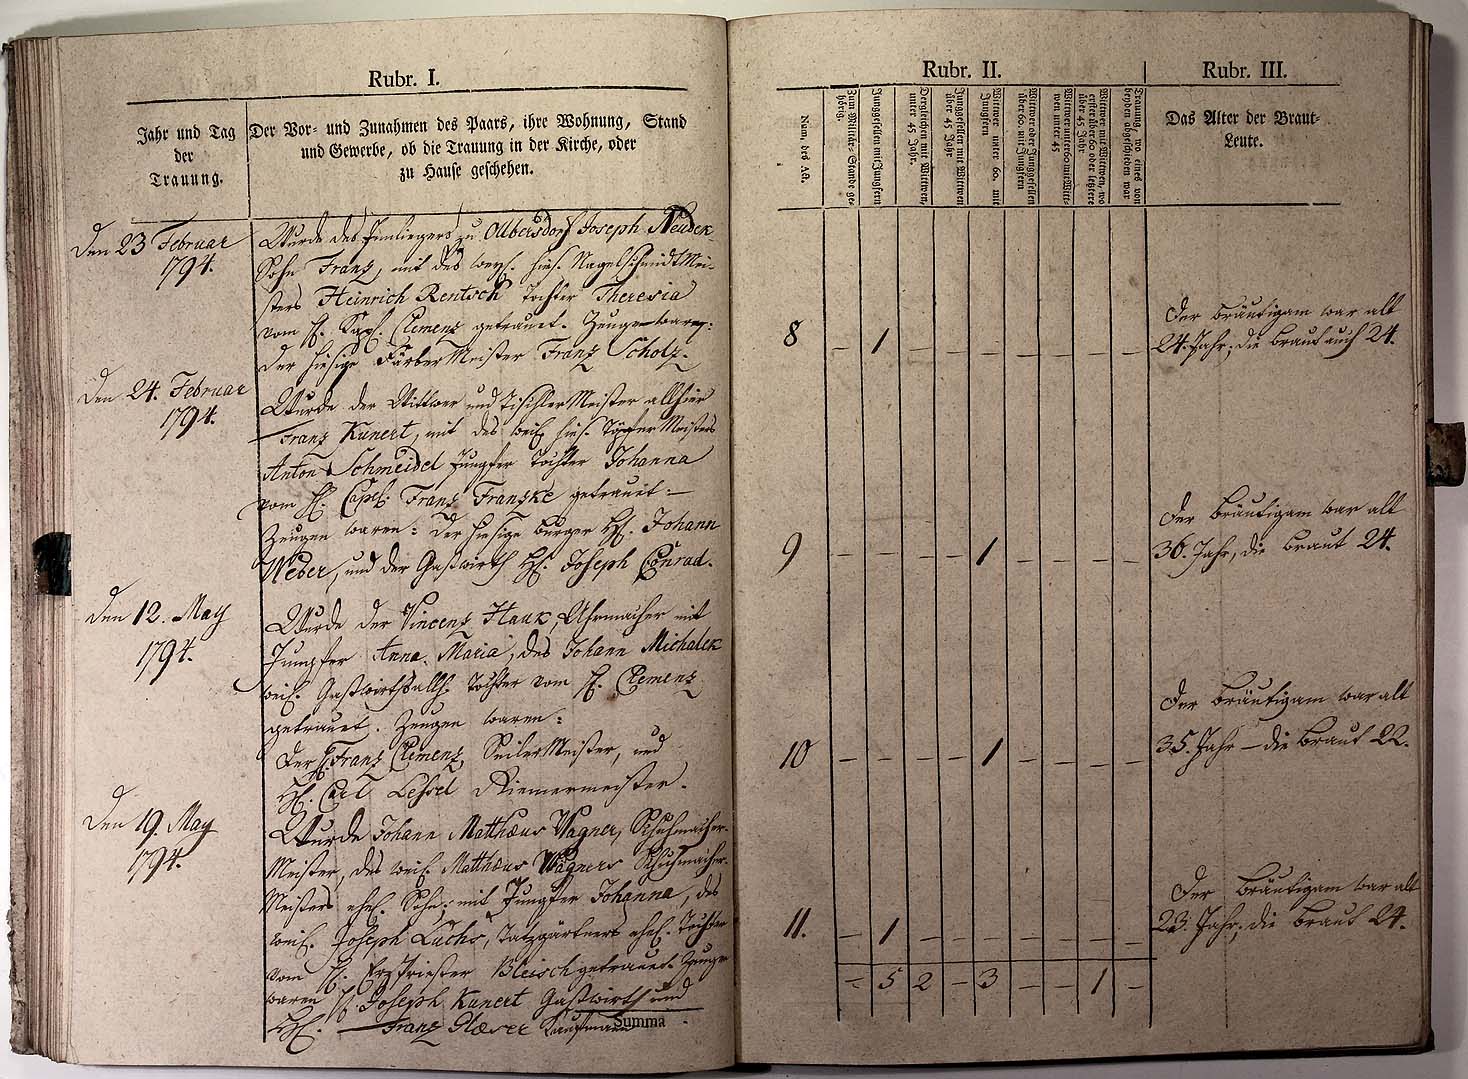 Rubr. I.
Jahr und Tag
der
Trauung.
Der Vor- und Zunahmen des Paars, ihre Wohnung, Stand
und Gewerbe, ob die Trauung in der Kirche, oder
zu Hause geschehen.
Den 23 Februar
1794.
Wurde des Innliegers zu Olbersdorf Joseph Neudek
Sohn Franz, mit des weyl. hies. Nagelschmidt Mei-
sters Heinrich Rentsch Tochter Theresia
vom H. Kapl. Clemenz getrauet. Zeuge waren:
der hiesige Färber Meister Franz Scholz.
Den 24. Februar
1794.
Wurde der Wittwer und Tischler Meister allhier
Franz Kunert, mit des weil. hies. Töpfer Meisters
Anton Schmeidel Jungfer Tochter Johanna
vom H. Capl. Franz Franzke getrauet.
Zeugen waren: der hiesige Bürger H. Johann
Weber, und der Gastwirth H. Joseph Conrad.
Den 12. May
1794.
Wurde der Vincenz Hauk, Uhrmacher mit
Jungfer Anna Maria, des Johann Michalek
weil. Gastwirths allh. Tochter vom H. Clemenz
getrauet. Zeugen waren:
der H. Franz Clemenz, Seiler Meister, und
H. Carl Lessel Riemermeister.
Den 19. May
1794.
Wurde Johann Matthæus Wagner, Schuhmacher-
Meister, des weil. Matthæus Wagners Schuhmacher-
Meisters ehel. Sohn, mit Jungfer Johanna, des
weil. Joseph Luchs, ehel. Tochter
vom H. Erzpriester Bleisch getrauet. Zeugen
waren H. Joseph Kunert Gastwirth und
H. Franz Glæser Kaufmann
Summa
Rubr. II.
Num. des Act.
Zum Militär-Stande ge-
hörig.
Junggesellen mit Jungfern
Dergleichen mit Wittwen,
unter 45 Jahr.
Junggesellen mit Wittwen
über 45 Jahr
Wittwer unter 60. mit
Jungfern
Wittwer oder Junggesellen
über 60. mit Jungfern
Wittwer unter 60 mit Witt-
wen unter 45
Wittwer mit Wittwen, wo
erster über 60 oder letztere
über 45 Jahr.
Trauung, wo eines von
beyden abgeschieden war
8 – 1 – – – – – –
9 – – – – 1 – – – –
10 – – – – 1 – – – –
11. – 1 – – – – – –
– 5 2 – 3 – – 1 –
Rubr. III.
Das Alter der Braut-
Leute.
Der Bräutigam war alt
24. Jahr, die Braut auch 24.
Der Bräutigam war alt
36. Jahr, die Braut 24.
Der Bräutigam war alt
35. Jahr – die Braut 22.
Der Bräutigam war alt
23. Jahr, die Braut 24.